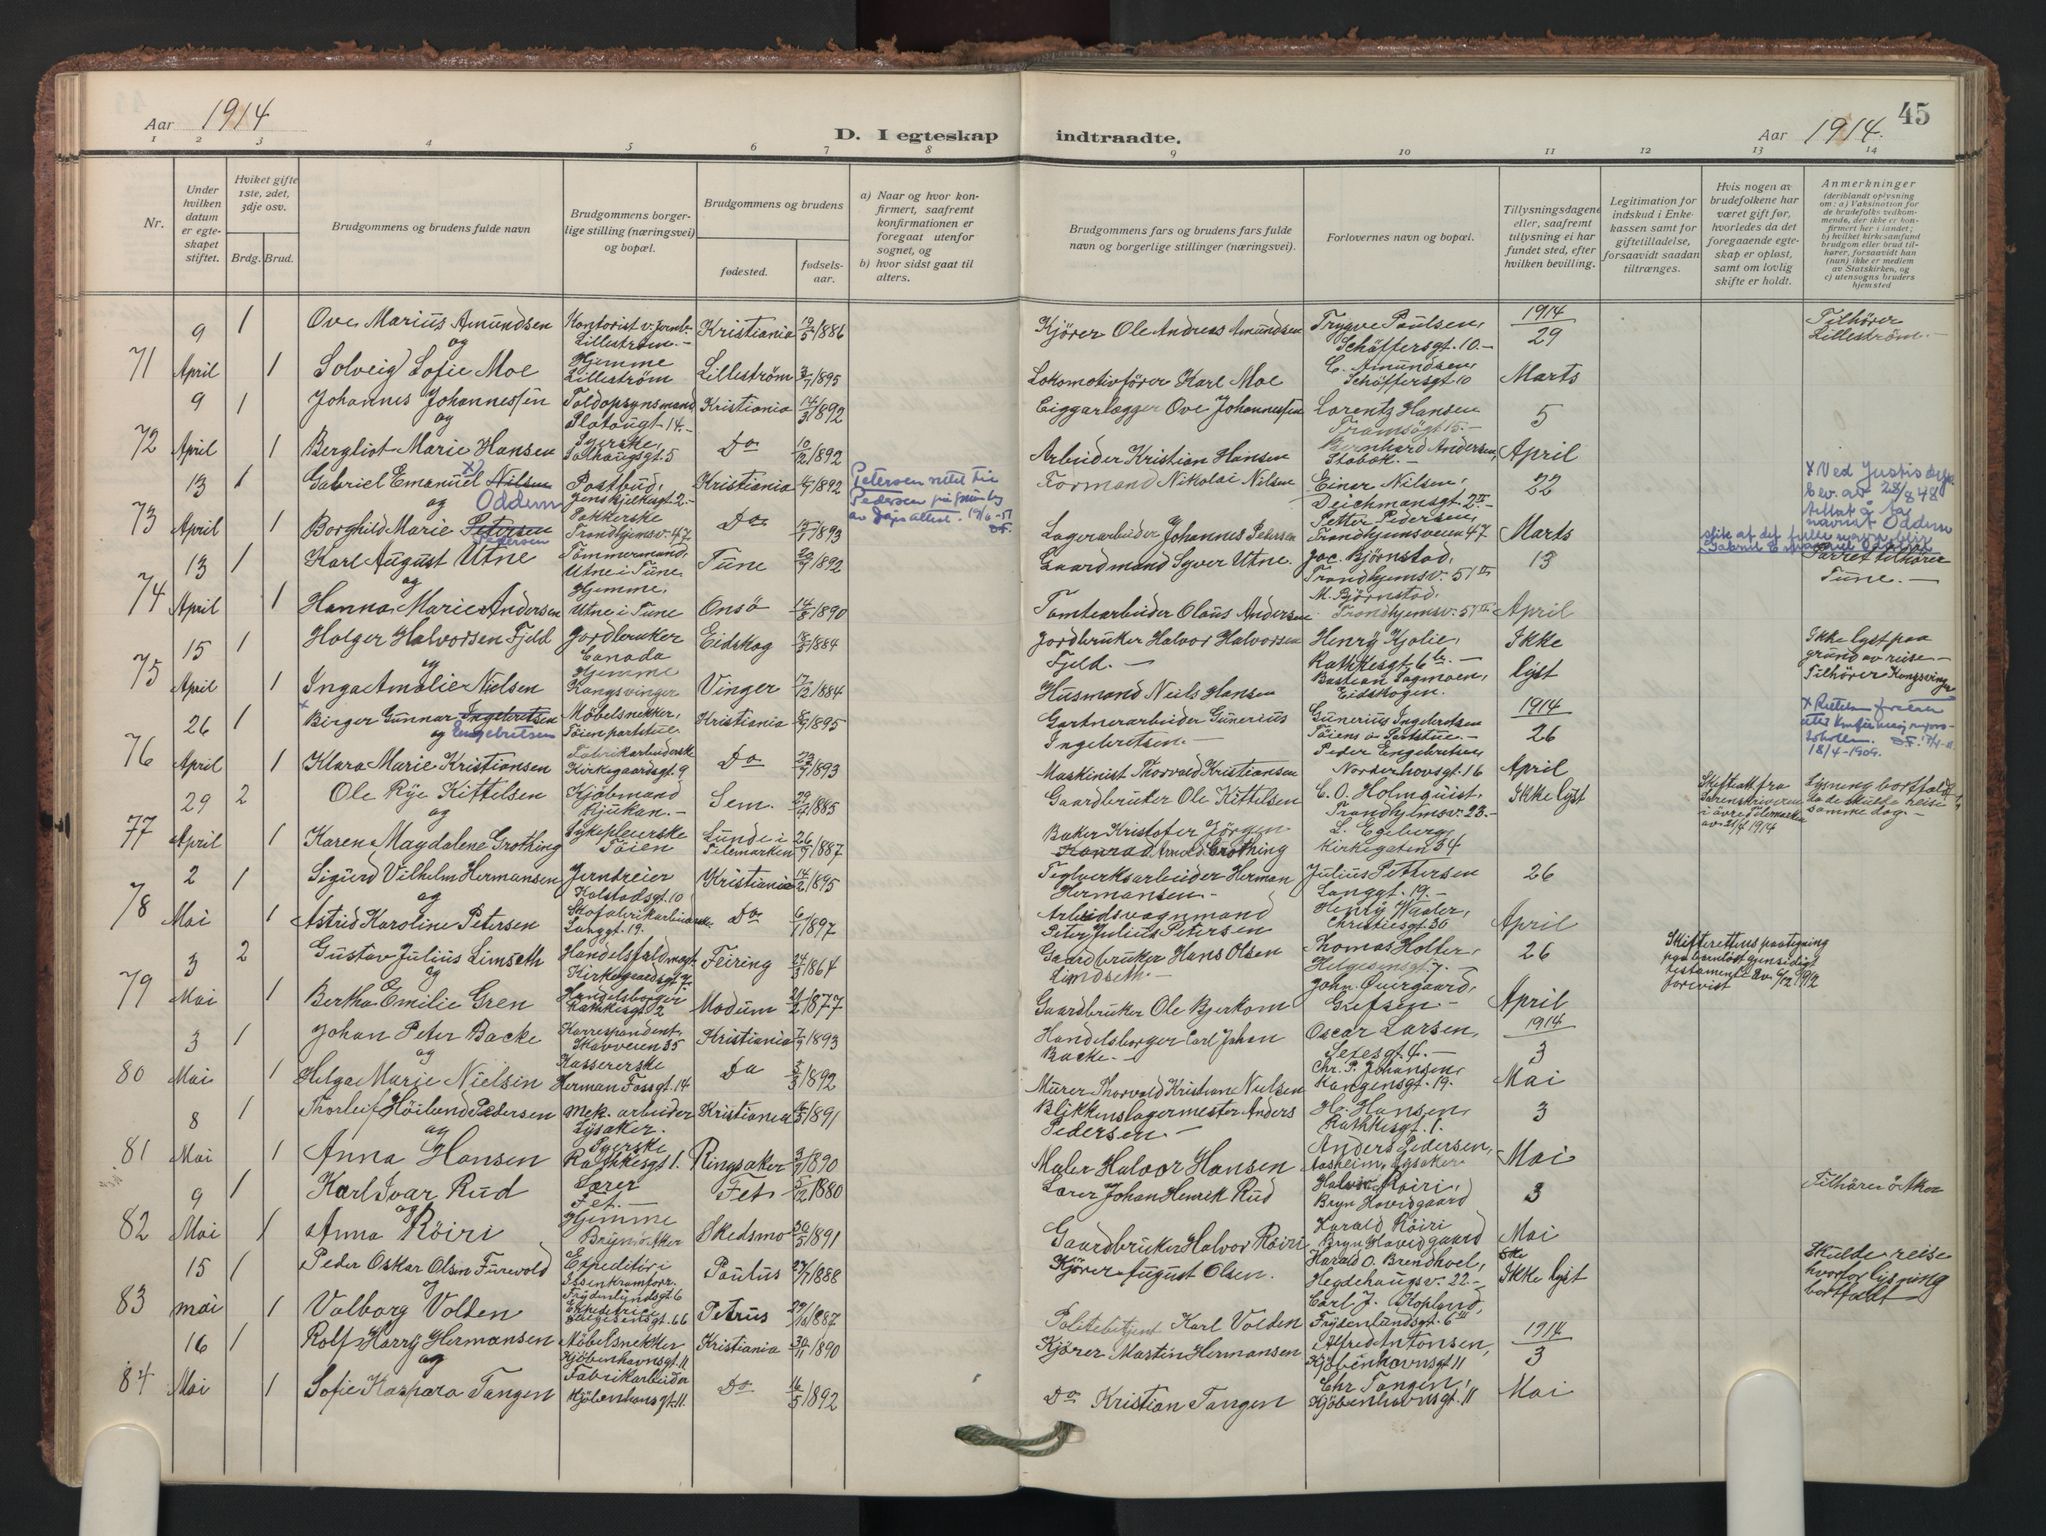 45
Aar 1914
D. I egteskap
indtraadte.
Aar 1914.
1 2 3 4 5 6 7 8 9 10 11 12 13 14
Nr.
Under hvilken datum er egteskapet stiftet.
Hvilket gifte 1ste, 2det, 3dje osv.
Brdg. Brud.
Brudgommens og brudens fulde navn
Brudgommens borgerlige stilling (næringsvei) og bopæl.
Brudgommens og brudens
fødested.
fødselsaar.
a) Naar og hvor konfirmert, saafremt konfirmationen er foregaat utenfor sognet, og
b) hvor sidst gaat til alters.
Brudgommens fars og brudens fars fulde navn og borgerlige stillinger (næringsvei).
Forlovernes navn og bopæl.
Tillysningsdagene eller, saafremt tillysning ei har fundet sted, efter hvilken bevilling.
Legitimation for indskud i Enkekassen samt for giftetilladelse, forsaavidt saadan tiltrænges.
Hvis nogen av brudefolkene har været gift før, hvorledes da det foregaaende egteskap er opløst, samt om lovlig skifte er holdt.
Anmerkninger (deriblandt oplysning om: a) Vaksination for de brudefolks vedkommende, der ikke er konfirmert her i landet; b) hvilket kirkesamfund brudgom eller brud tilhører, forsaavidt han (hun) ikke er medlem av Statskirken, og c) utensogns bruders hjemsted
71 9 April 1 Ove Marius Amundsen Kontorist v. Jernb. Lillestrøm.- Kristiania 19/5 1886 Kjører Ole Andreas Amundsen Trygve Paulsen, Schäffersgt. 10.- 1914 29 Tilhører Lillestrøm.-
og
1 Solveig Sofie Moe Hjemme Lillestrøm Lillestrøm 3/7 1895 Lokomotivfører Karl Moe C. Amundsen, Schäffersgt 10 Marts
72 9 April 1 Johannes Johannessen Toldopsynsmand Platougt 14.- Kristiania 14/3 1892 Ove Johannessen Lorentz Hansen Tromsøgt 15.- 5
og
1 Bergliot Marie Hansen Syerske, Solhaugsgt. 5 Do 10/12 1892 Arbeider Kristian Hansen Bernhard Andersen, Stabæk.- April
73 13 April 1 Gabriel Emanuel Nilsen Oddum Postbud, Kristiania 1892 Formand Nikolai Nilsen Einar Nilsen, Deichmansgt. 2 II 22
Petersen rettet til Pedersen
× Ved Justisdep. bev. av 28/8 48 tillat å ta navnet Oddum slik at det fulle navn blir
og
1 Borghild Marie Petersen Pedersen Pakkerske Trondhjemsv. 47 Do 1893 Lagerarbeider Johannes Petersen Petter Pedersen, Trondhjemsveien 47 Marts
74 13 April 1 Karl August Utne Tømmermand, Utne i Tune Tune 20/9 1892 Gaardmand Syver Utne Jac. Bjørnstad, Trondhjemsv. 51 II 13 Parret tilhører Tune.-
og
1 Hanna Marie Andersen Hjemme, Utne i Tune Onsø 14/8 1890 Tomtearbeider Olaus Andersen M. Bjørnstad, Trondhjemsv. 51 II April
75 15 April 1 Holger Halvorsen Fjeld Jordbruker Canada Eidskog 1884 Jordbruker Halvor Halvorsen Fjeld.- Henry Kjolie, Rathkesgt. 6 b.- Ikke Ikke lyst paa grund av reise.- Tilhører Kongsvinger
og
1 Inga Amalie Nielsen Hjemme Kongsvinger Vinger 7/12 1884 Husmand Niels Hansen Bastian Sagmoen, Eidskogen. lyst
76 26 April 1 Birger Gunnar Ingebretsen Engebretsen Møbelsnekker, Tøien partstue Kristiania 1895 Gartnerarbeider Gunerius Ingebretsen.- Gunerius Ingebretsen Tøiens ø Partstue.- 1914 26
18/4-1909.
og
1 Klara Marie Kristiansen Fabrikarbeiderske Kirkegaardsgt. 9 Do 23/7 1893 Maskinist Thorvald Kristiansen Peder Engebretsen Norderhovsgt. 16 April
77 29 April 2 Ole Rye Kittelsen Kjøbmand Rjukan.- Sem. 29/4 1885 Gaardbruker Ole Kittelsen C. O. Holmquist, Trondhjemsv. 23.- Ikke lyst Skifteatt fra Sorenskriveren i øvre Telemarken av 21/4 1914 Lysning bortfaldt da de skulde reise samme dag.-
og
1 Karen Magdalene Grothing Sykepleierske Tøien Lunde i Telemarken 26/9 1887 Baker Kristofer Jørgen Konrad Arnold Grothing L. Egeberg, Kirkegaten 34
78 2 Mai 1 Sigurd Vilhelm Hermansen Jerndreier Kolstadsgt. 10 Kristiania 14/2 1895 Teglverksarbeider Herman Hermansen.- Julius Pettersen Langgt. 19.- 26
og
1 Astrid Karoline Petersen Skofabrikarbeiderske Langgt. 19. Do 1897 Arbeidsvognmand Peter Julius Petersen Henry Waaler, Christiesgt 30 April
79 3 Mai 2 Gustav Julius Limseth Handelsfuldmægt. Kirkegaardsgt. 7 Feiring 24/3 1864 Gaardbruker Hans Olsen Limdseth.- Thomas Holter, Helgesensgt. 7.- 26 Skifterettens paategning paa barnløst gjensidigt testamente av 6/12 1912 forevist
og
1 Bertha Emilie Gren Handelsborger Rathkesgt. 2 Modum 21/2 1877 Gaardbruker Ole Bjerkom John. Øvergaard, Grefsen.- April
80 3 Mai 1 Johan Peter Backe Korrespondent, Skovveien 35 Kristiania 7/9 1893 Handelsborger Carl Johan Backe.- Oscar Larsen, Sexesgt. 4.- 1914 3
og
1 Helga Marie Nielsin Kassererske Herman Fossgt. 14 Do 3/3 1892 Murer Thorvald Kristian Nielsen Chr. P. Johansen, Kongensgt. 19. Mai
81 8 Mai 1 Thorleif Höilund Pedersen Mek. arbeider Lysaker. Kristiania 1891 Blikkenslagermester Anders Pedersen.- H. Hansen, Rathkesgt. 1. 3
og
1 Anna Hansen Syerske Rathkesgt 1. Ringsaker 3/9 1890 Maler Halvor Hansen Anders Pedersen, Aasheim, Lysaker Mai
82 9 Mai 1 Karl Ivar Rud Lærer Fet.- Fet 5/12 1880 Lærer Johan Henrik Rud Halvor Röiri, Bryn Hovedgaard 3 Tilhører ø Aker
og
1 Anna Röiri Hjemme Bryn ø. Aker Skedsmo 30/5 1891 Gaardbruker Halvor Röiri Harald Röiri Bryn Hovedgaard Mai
83 15 mai 1 Peder Oskar Olsn Furevold Expeditør i Frydenlundsgt 6 Paulus 27/7 1888 Kjører August Olsen. Harald O. Brendhoel, Hegdehaugsv. 22.- Ikke lyst Skulde reise hvorfor lysning bortfaldt
og
1 Valborg Volden Expeditrice Helgesensgt. 66 Petrus 29/10 1887 Politibetjent Karl Volden Carl J. Hopland, Frydenlundsgt. 6 III
84 16 Mai 1 Rolf Harry Hermansen Møbelsnekker Kjøbenhavnsgt. 11 Kristiania 30/11 1890 Kjører Martin Hermansen Alfred Antonsen, Kjøbenhavnsgt 11 1914 3
og
1 Sofie Kaspara Tangen Fabrikarbeider Kjøbenhavnsgt. 11 Do 16/5 1892 Do Kristian Tangen Chr Tangen, Kjøbenhavnsgt. 11 Mai